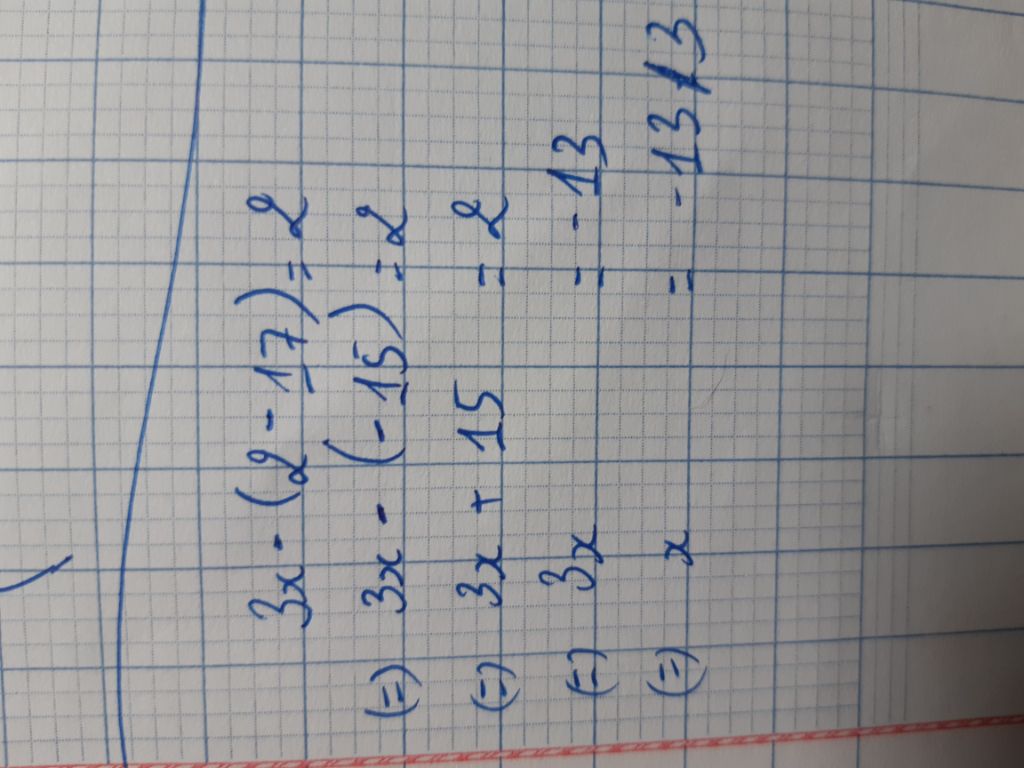 3x - (2 - 17) = 2
(=) 3x - (-15) = 2
(=) 3x + 15 = 2
(=) 3x = - 13
(=) x = - 13/3